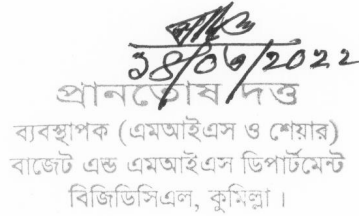 ১৪/০৬/2022
প্রানতোষ দত্ত
ব্যবস্থাপক (এমআইএস ও শেয়ার)
বাজেট এন্ড এমআইএস ডিপার্টমেন্ট
বিজিডিসিএল, কুমিল্লা।